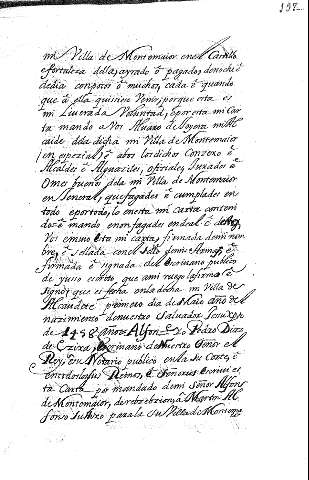 132
mi Villa de Montemaior en el Castillo
e fortaleza della, ayrado ó pagado, de noche ó
de dia con pocos ó muchos, cada é quando
que á ella quisiere venir, porque esta es
mi Liverada Voluntad, é por esta mi Car
ta mando a Vos Alvaro de Sayera mi Al
caide de la dicha mi Villa de Montemaior
en especial, é a bos los dichos Conzexo é
Alcaldes é Alguaziles, ofiziales Jurados é
Omes buenos de la mi Villa de Montemaior
en General, que fagades é cumplades en
todo e por todo, lo en esta mi carta conteni
do: é mando
Vos esta mi carta, firmada de mi nom
bre, é sellada con el Sello de mis Armas, é
firmada é signada del Escrivano publico
de yuso escrito, que a mi ruego la firmó é
Signó, que es fecha en la dicha mi Villa de
Alcaudete primero dia de Maio año del
nazimiento de nuestro Salvador
de 1458 años Alfon. E yo Pedro Diaz
de Ezixa, Escrivano de Nuestro Señor el
Rey, é su Notario publico en la su Corte, é
en todos los sus Reinos, é Señorios escrivi es
ta Carta por mandado de mi Señor Alfonso
de Montemaior,
fonso para la su Villa de Montem